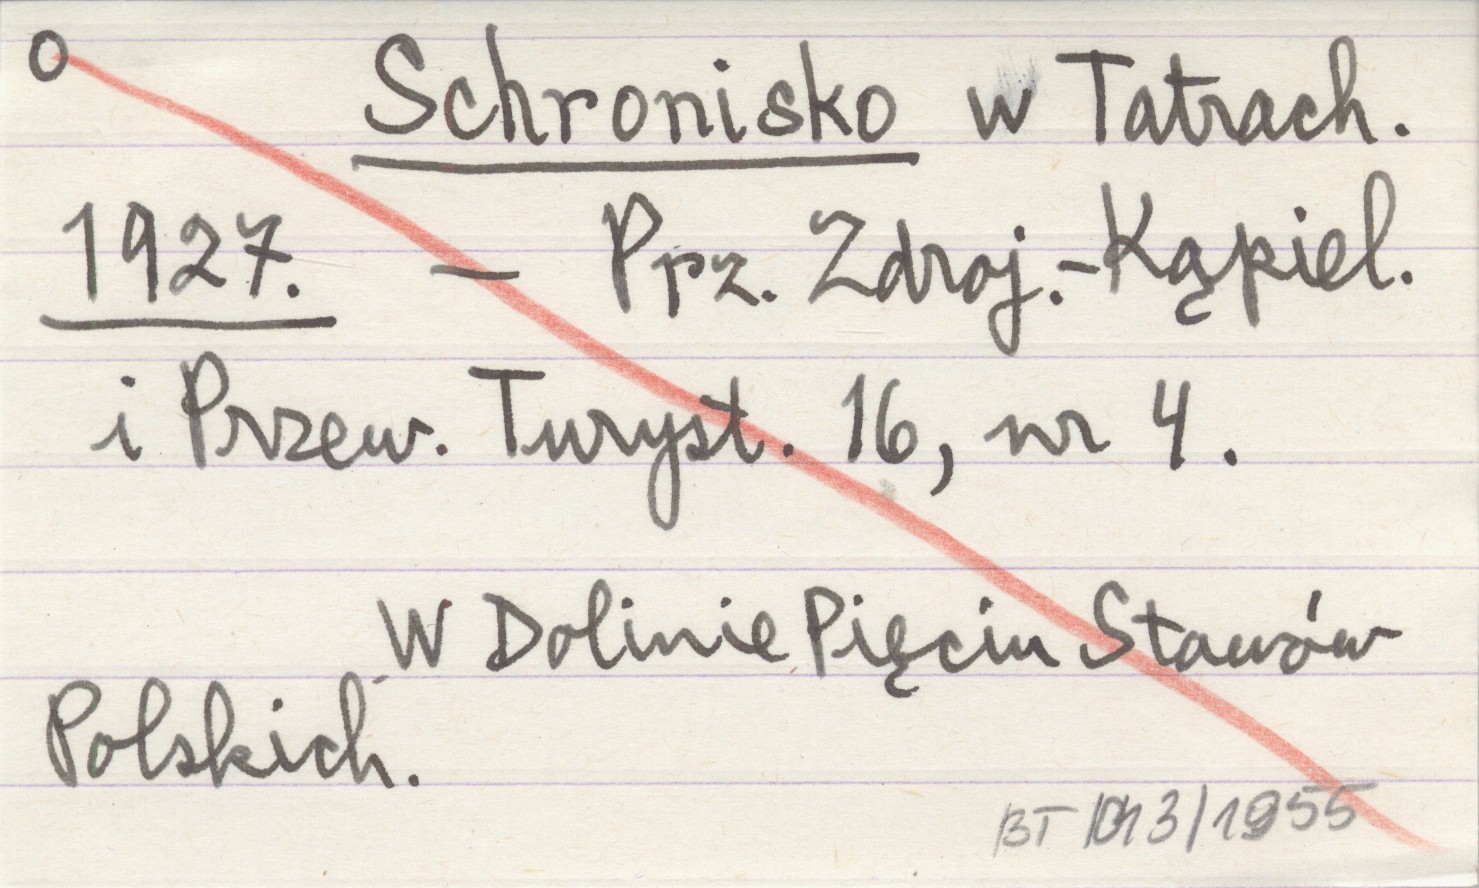 O Schronisko w Tatrach.
1927. — Prz. Zdroj.-Kąpiel.
i Przew. Turyst. 16, nr 4.
W Dolinie Pięciu Stawów
Polskich.
BT